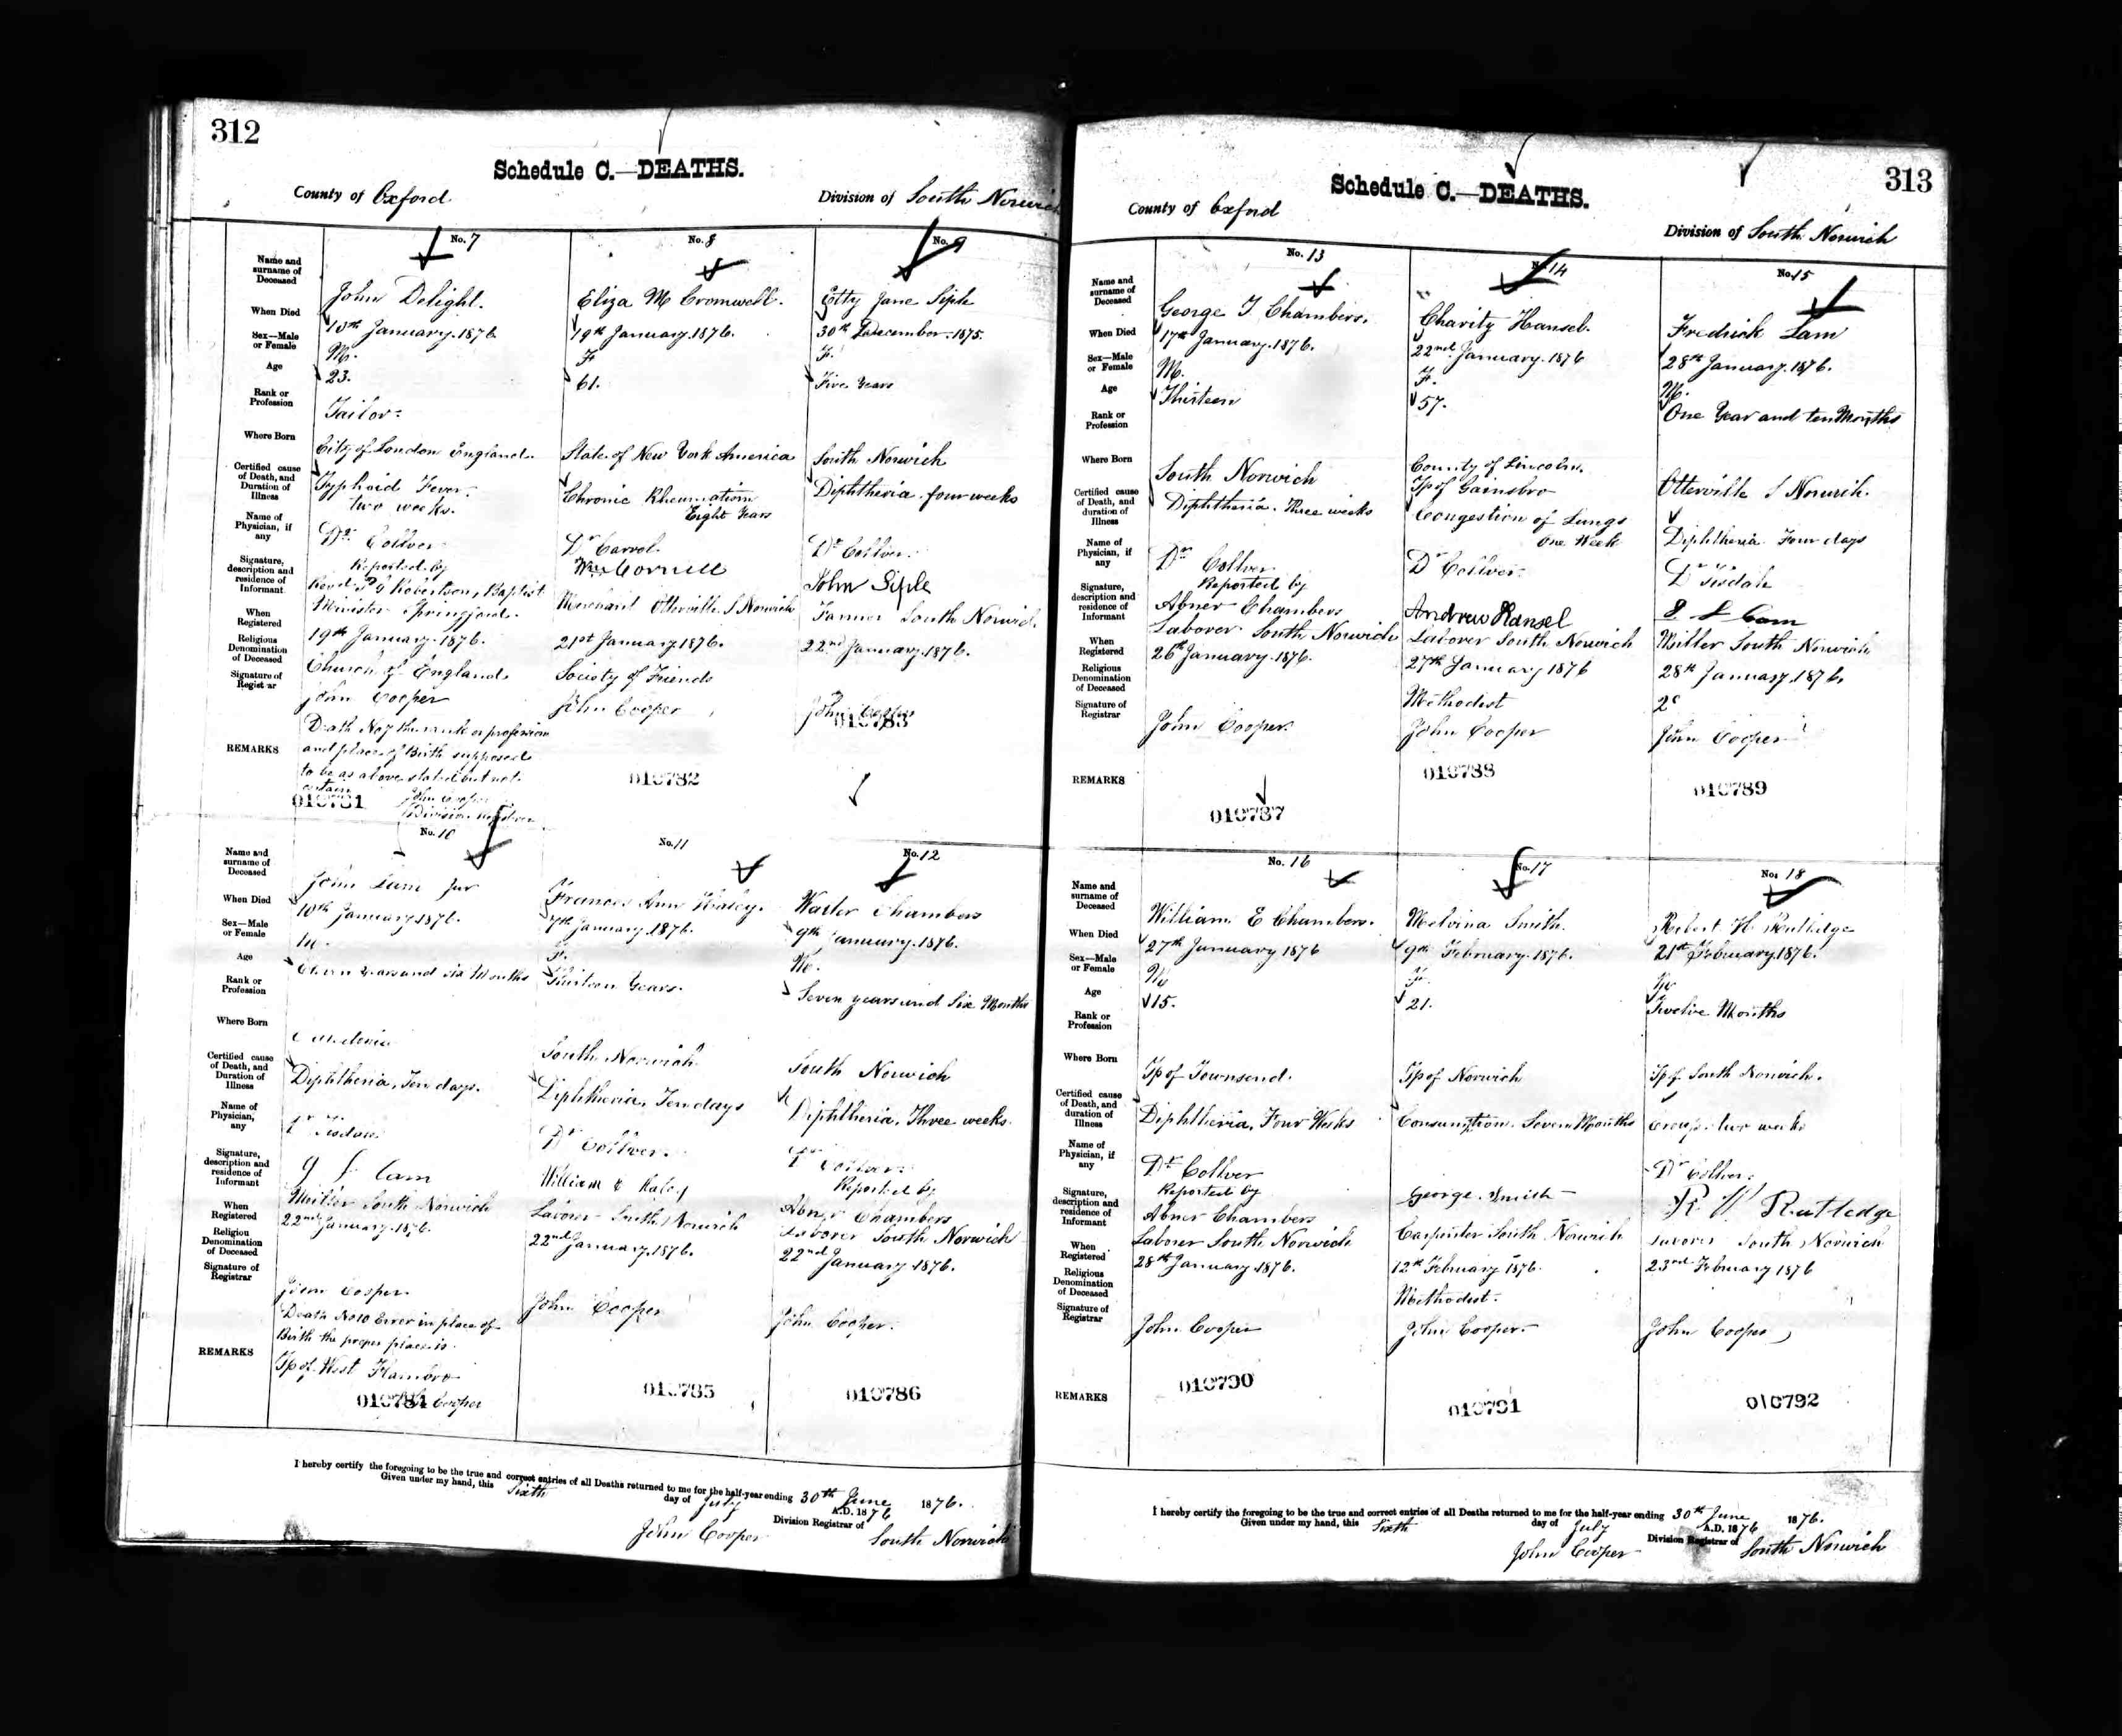 312
Schedule C.—DEATHS.
County of Oxford
Division of South Norwich
No. 7
No. 8
No. 9
Name and surname of Deceased
John Delight.
Eliza M Cromwell.
Etty Jane Siple
When Died
18th January. 1876
19th January. 1876.
30th December. 1875.
Sex—Male or Female
M.
F
F.
Age
23.
61.
Five Years
Rank or Profession
Tailor.
Where Born
City of London England.
State of New York America
South Norwich
Certified cause of Death, and Duration of Illness
Typhoid Fever. two weeks.
Chronic Rheumatism Eight Years
Diphtheria four weeks
Name of Physician, if any
Dr. Collver
Dr Carrol.
Dr Collver.
Signature, description and residence of Informant
Reported by
Revd. P G Robertson, Baptist Minister Springford.
Wm Cornell
Merchant Otterville S Norwich
John Siple
Farmer South Norwich.
When Registered
19th January. 1876.
21st January 1876.
22nd January. 1876.
Religious Denomination of Deceased
Church of England.
Society of Friends
Signature of Registrar
John Cooper
John Cooper
John Cooper
REMARKS
Death No 7 the rank or profession
and place of Birth supposed
to be as above stated but not
certain
John Cooper
Division Registrar
010781
010782
010783
No. 10
No. 11
No. 12
Name and surname of Deceased
John Lam Jur
Frances Ann Haley.
Walter Chambers
When Died
10th January 1876.
7th January. 1876.
9th January. 1876.
Sex—Male or Female
M.
F.
M.
Age
years and six Months
Years.
Seven years and Six Months
Rank or Profession
Where Born
South Norwich
South Norwich
Certified cause of Death, and Duration of Illness
Diphtheria, Ten days.
Diphtheria, Ten days
Diphtheria, Three weeks.
Name of Physician, any
Dr Tisdale
Dr Collver.
Dr Collver.
Signature, description and residence of Informant
Lam
Miller South Norwich
William Haley
Laborer South Norwich
Reported by
Abner Chambers
Laborer South Norwich
When Registered
22nd January. 1876.
22nd January. 1876.
22nd January 1876.
Religiou Denomination of Deceased
Signature of Registrar
John Cooper.
John Cooper
John Cooper.
REMARKS
Death No 10 Error in place of
Birth the proper place is
Tp of West Flamboro
John Cooper
010784
010785
010786
I hereby certify the foregoing to be the true and correct entries of all Deaths returned to me for the half-year ending 30th June 1876.
Given under my hand, this Sixth day of July A.D. 1876
John Cooper Division Registrar of South Norwich
313
Schedule C.—DEATHS.
County of Oxford
Division of South Norwich
No. 13
No. 14
No. 15
Name and surname of Deceased
George T Chambers.
Charity Hansel.
Fredrick Lam
When Died
17th January. 1876.
22nd January. 1876
28th January. 1876.
Sex—Male or Female
M.
F.
M.
Age
Thirteen
57.
One Year and ten Months
Rank or Profession
Where Born
South Norwich
County of Lincoln.
Tp of Gainsbro
Otterville S Norwich.
Certified cause of Death, and duration of Illness
Diphtheria. Three weeks
Congestion of Lungs
One Week
Diphtheria Four days
Name of Physician, if any
Dr. Collver
Dr Collver.
Dr Tisdale
Signature, description and residence of Informant
Reported by
Abner Chambers
Laborer South Norwich
Andrew Hansel
Laborer South Norwich
Lam
Miller South Norwich
When Registered
26th January. 1876.
27th January 1876
28th January. 1876.
Religious Denomination of Deceased
Methodist
Signature of Registrar
John Cooper.
John Cooper
John Cooper
REMARKS
010787
010788
010789
No. 16
No. 17
No. 18
Name and surname of Deceased
William E Chambers.
Melvina Smith.
Robert H. Rutledge
When Died
27th January 1876
9th February. 1876.
21st February 1876.
Sex—Male or Female
M
F.
M
Age
15.
21.
Twelve Months
Rank or Profession
Where Born
Tp of Townsend.
Tp of Norwich
Tp of South Norwich.
Certified cause of Death, and duration of Illness
Diphtheria, Four Weeks
Consumption. Seven Months
Croup. two weeks
Name of Physician, if any
Dr. Collver
Dr Collver.
Signature, description and residence of Informant
Reported by
Abner Chambers
Laborer South Norwich
George. Smith
Carpenter South Norwich
R H Rutledge
Laborer South Norwich
When Registered
28th January. 1876.
12th February 1876.
23rd February 1876
Religious Denomination of Deceased
Methodist.
Signature of Registrar
John Cooper
John Cooper.
John Cooper
REMARKS
010790
010791
010792
I hereby certify the foregoing to be the true and correct entries of all Deaths returned to me for the half-year ending 30th June 1876.
Given under my hand, this Sixth day of July A.D. 1876
John Cooper Division Registrar of South Norwich